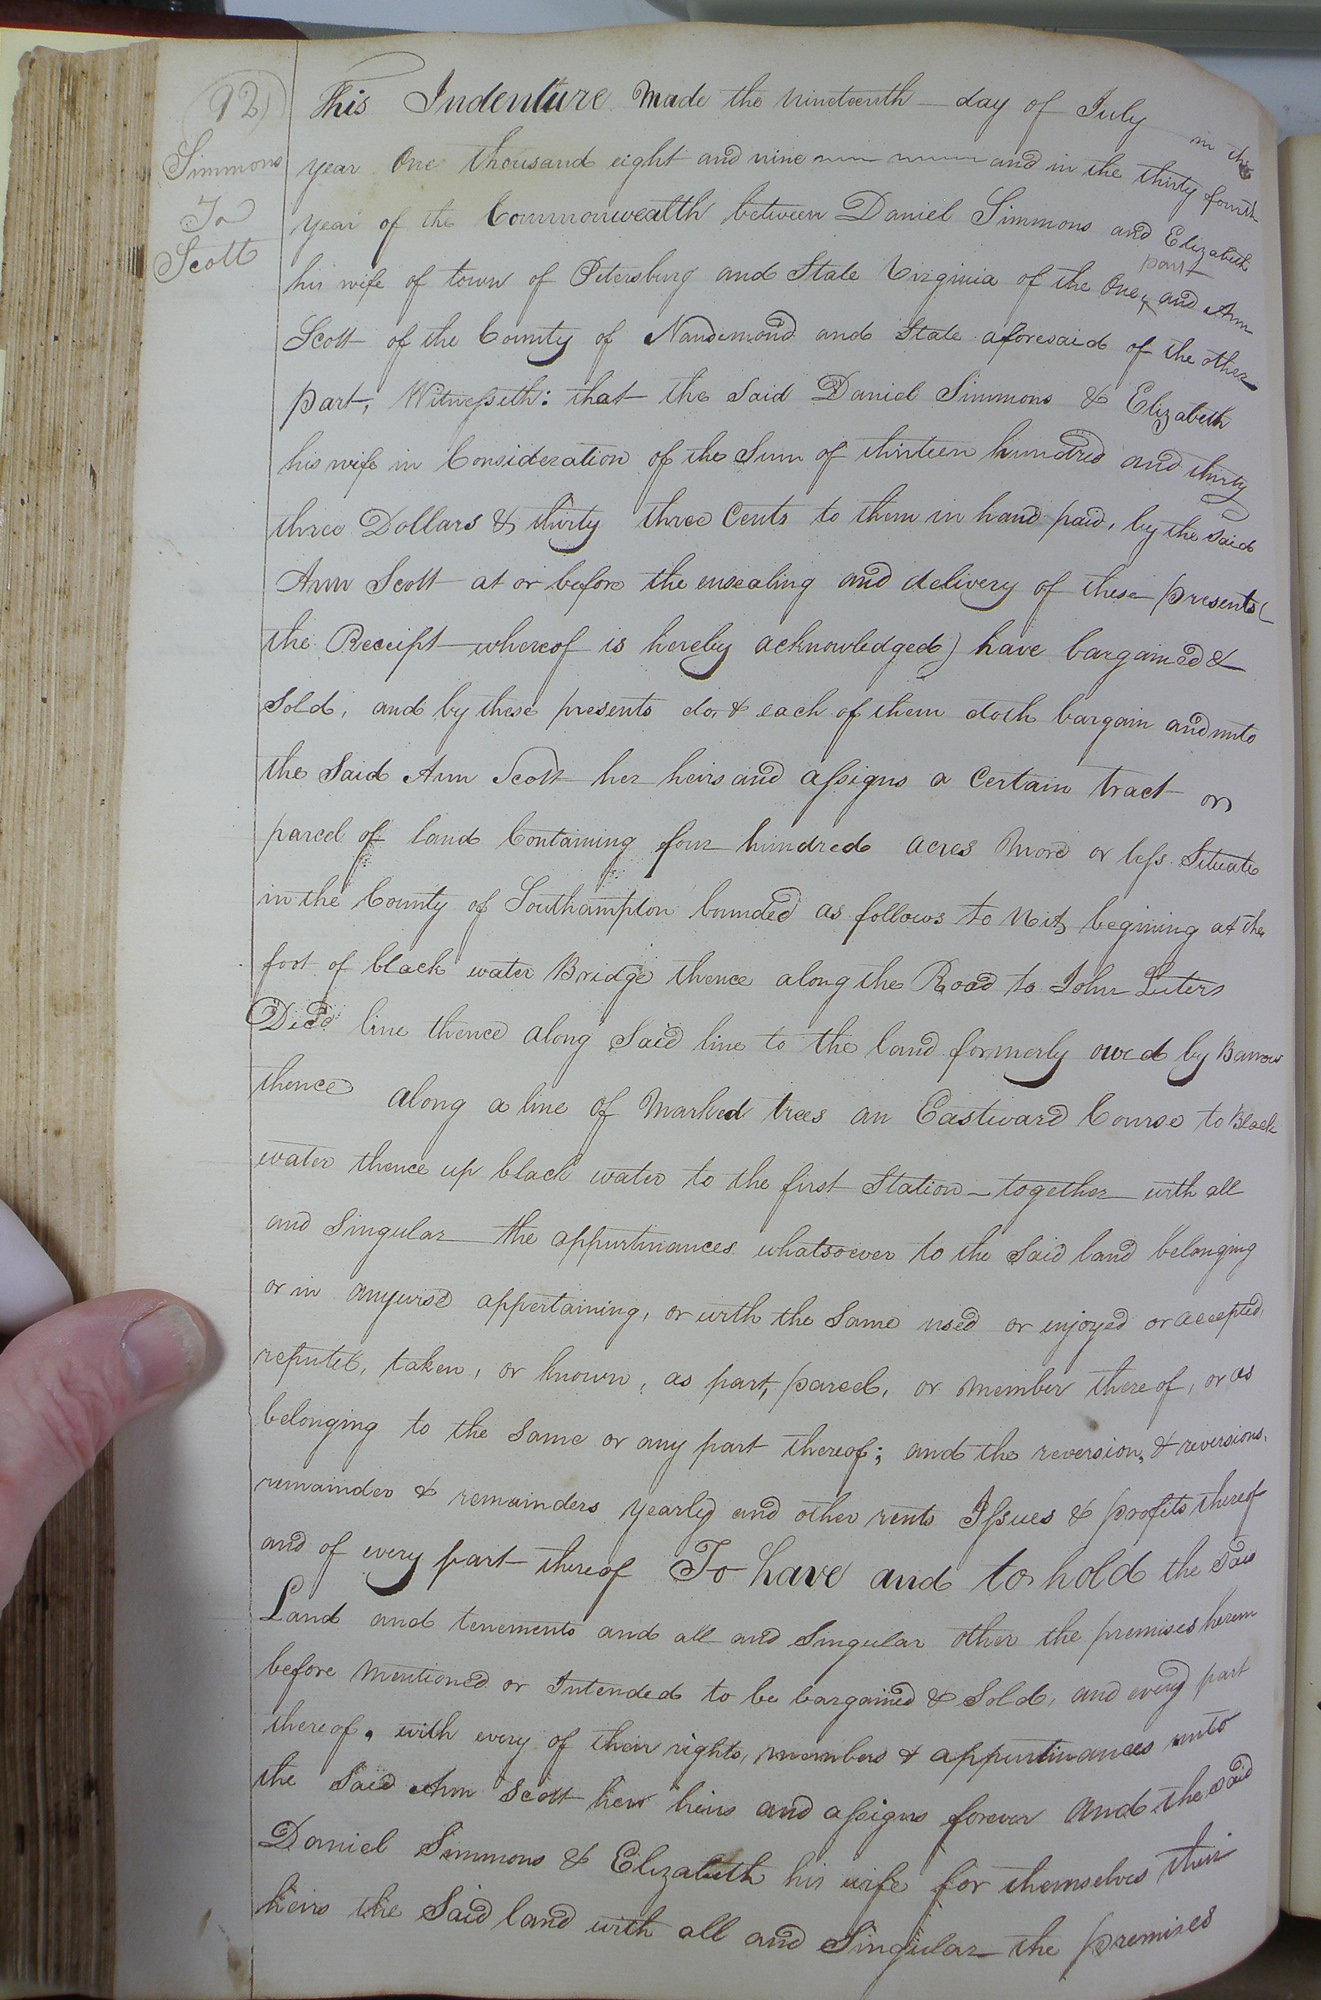 92)
Simmons
To
Scott
This Indenture Made the nineteenth day of July in the
year One thousand eight and nine and in the thirty fourth
year of the Commonwealth between Daniel Simmons and Elizabeth
part
his wife of town of Petersburg and State Virginia of the One, and Ann
Scott of the County of Nandemond and State aforesaid of the other
part, Witnesseth: that the Said Daniel Simmons & Elizabeth
his wife in Consideration of the Sum of thirteen hundred and thirty
three Dollars & thirty three Cents to them in hand paid, by the Said
Ann Scott at or before the ensealing and delivery of these presents (
the Receipt whereof is hereby acknowledged) have bargained &
Sold, and by these presents do, & each of them doth bargain and unto
the Said Ann Scott her heirs and assigns a Certain tract or
parcel of land Containing four hundred acres More or less Situate
in the County of Southampton bounded as follows to Wit, begining at the
foot of black water Bridge thence along the Road to John Luters
Decd line thence along Said line to the land formerly owed by Barrow
thence along a line of Marked trees an Eastward Course to Black
water thence up black water to the first Station together with all
and Singular the appurtinances whatsoever to the Said land belonging
or in anywise appertaining, or with the Same used or enjoyed or accepted,
reputed, taken, or known, as part, parcel, or Member thereof, or as
belonging to the Same or any part thereof; and the reversion, & reversions,
remainder & remainders yearly and other rents Issues & profits thereof
and of every part thereof To have and to hold the Said
Land and tenements and all and Singular other the premises herein
before Mentioned or Intended to be bargained & Sold, and every part
thereof, with every of their rights, members & appurtinances unto
the Said Ann Scott her heirs and assigns forever and the Said
Daniel Simmons & Elizabeth his wife for themselves their
heirs the Said land with all and Singular the premises